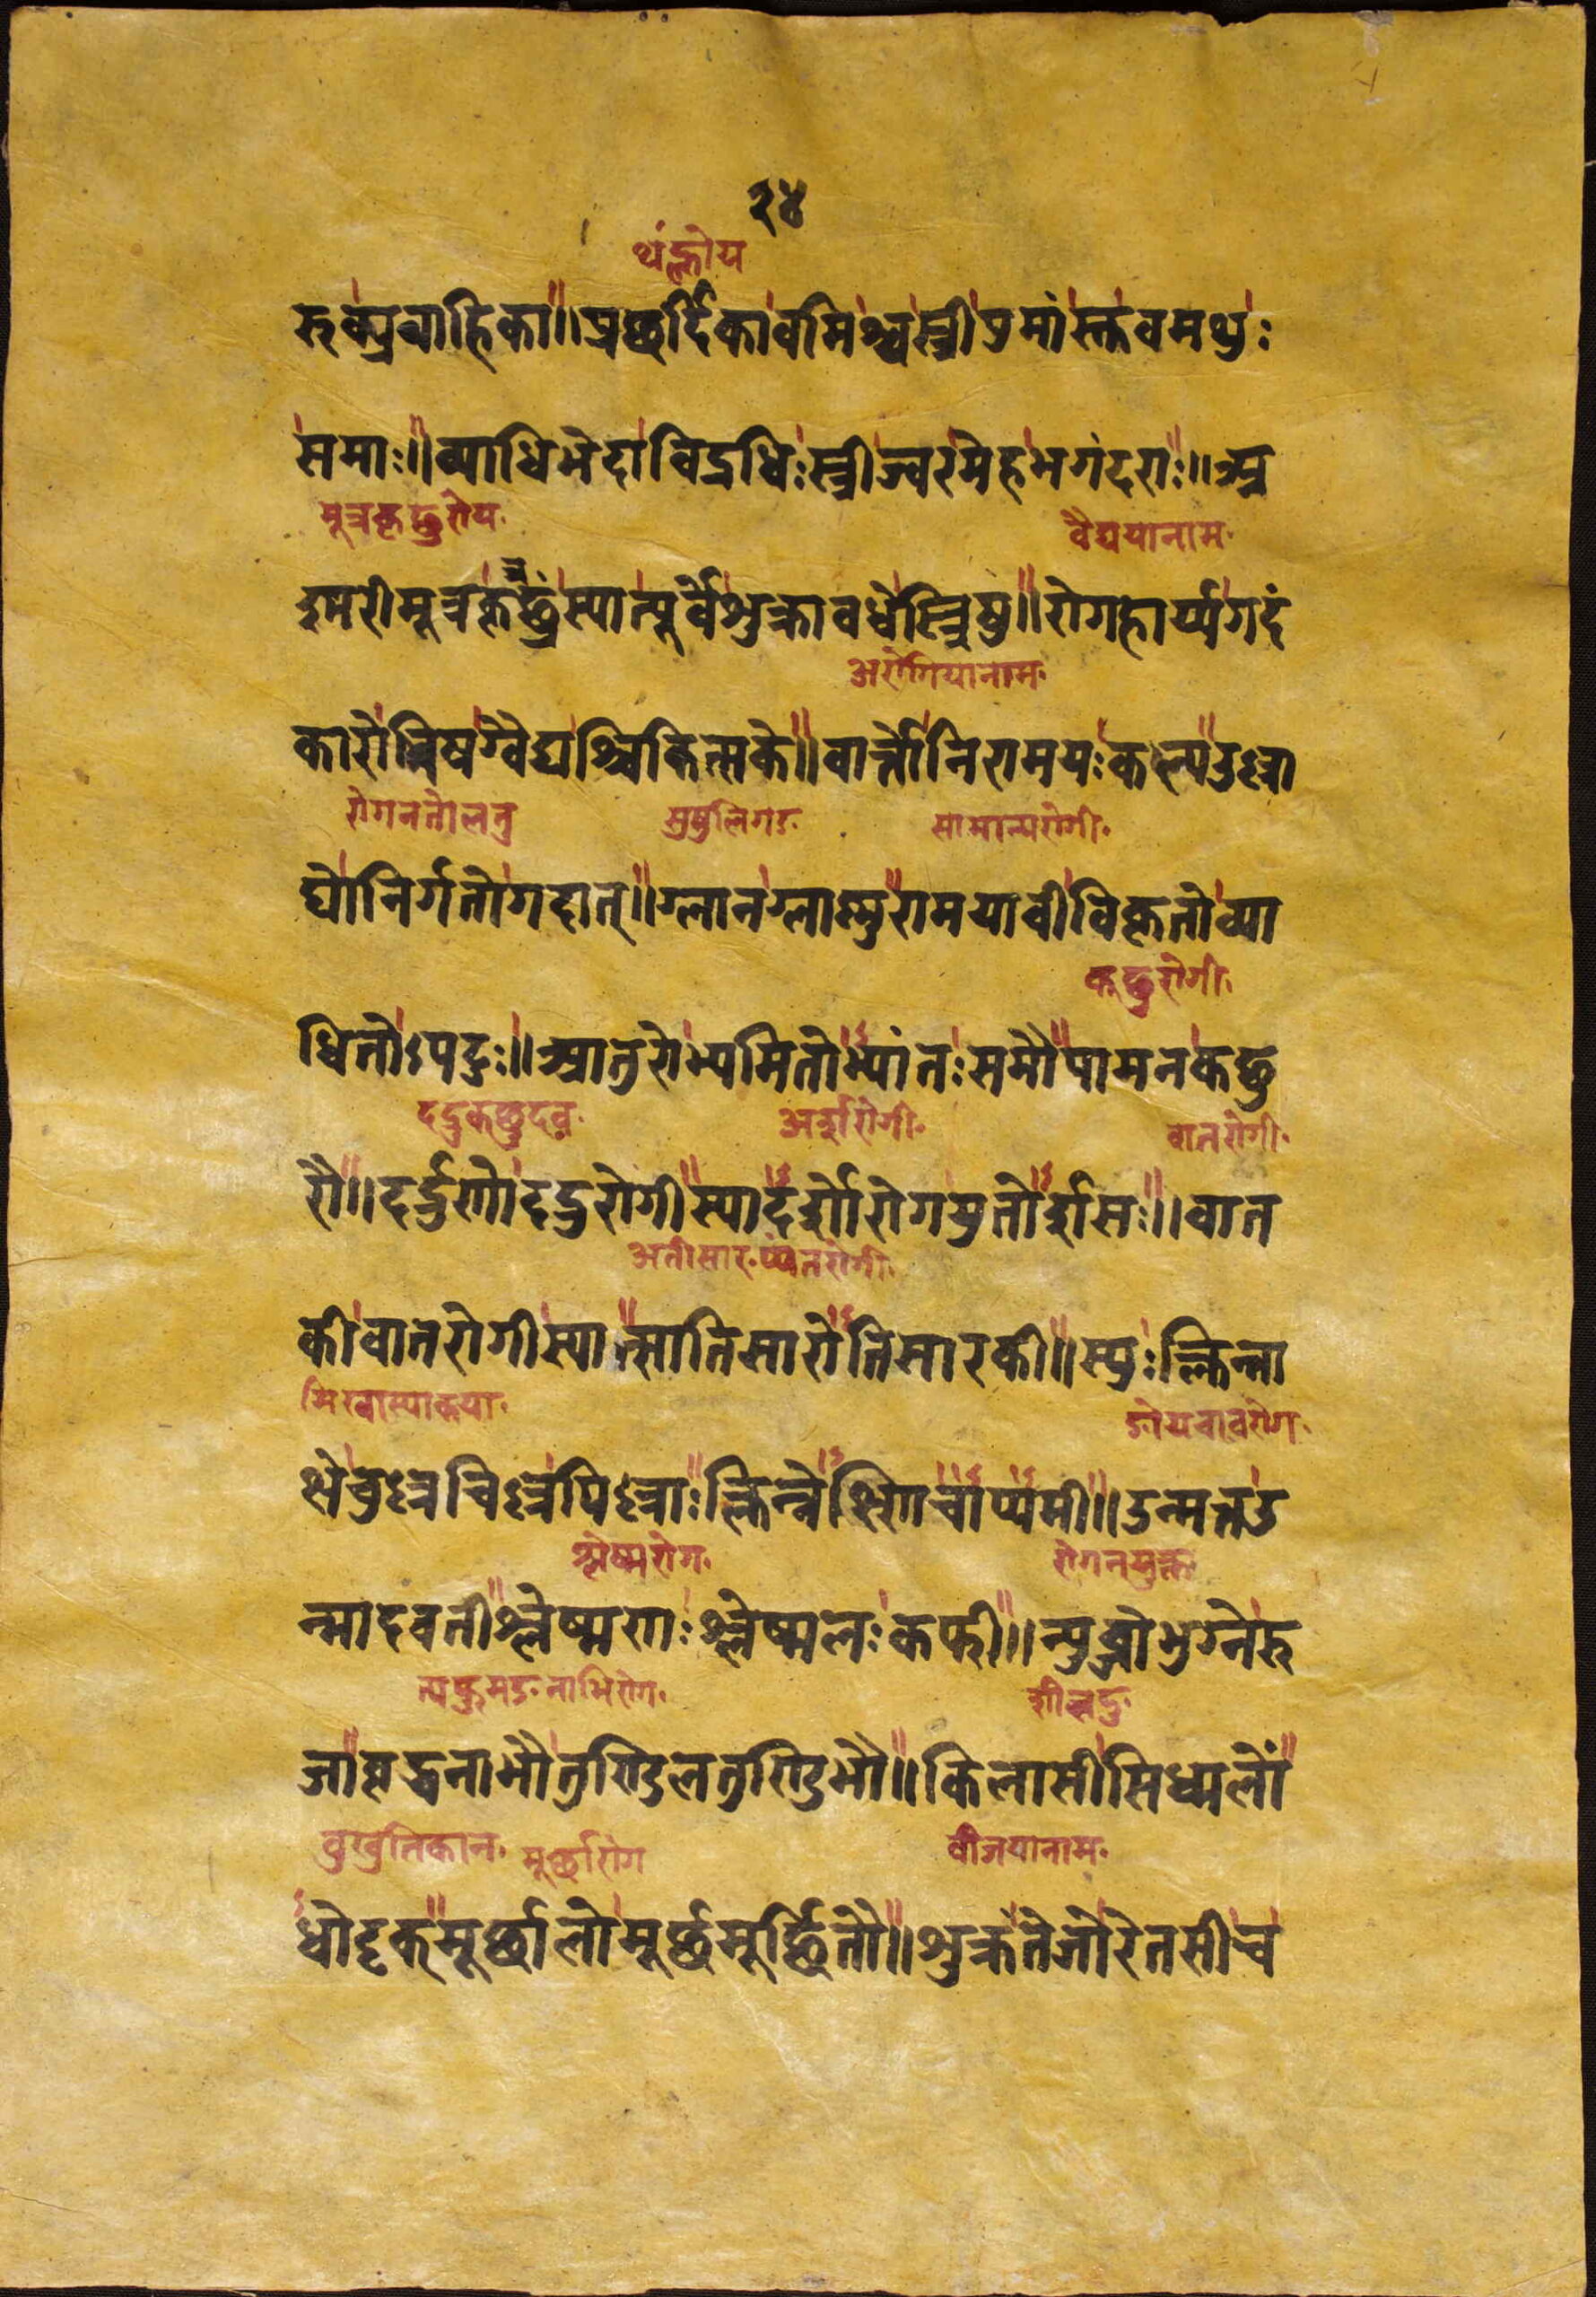 २४
थंह्लोय
रुक्प्रवाहिका॥प्रच्छर्दिकावमिश्चस्त्रीपुमांस्तुवमथुः
समाः॥व्याधिभेदाविद्रधिःस्त्रीज्वरमेहभगंदराः॥अ
मूत्रकृछ्ररोय वैद्ययानाम
श्मरीमूत्रकृछ्रंस्यात्पूर्वेशुक्रावधेस्त्रिषु॥रोगहार्य्यगदं
अरोगियानाम
कारोभिषग्वैद्यश्चिकित्सके॥वार्त्तोनिरामयःकल्पउल्ला
रोगनतोलतु सामान्यरोगी
घोनिर्गतोगदात्॥ग्लानग्लास्नुरामयावीविकृतोव्या
कछुरोगी
धितोऽपटुः॥आतुरोभ्यमितोभ्यांतःसमौपामनकछु
दद्रुकछुदव अर्शरोगी वातरोगी
रौ॥दर्द्रुणोदद्रुरोगीस्यादर्शोरोगयुतोर्शसः॥वात
अतीसार रोगी
कीवातरोगीस्यात्सातिसारोतिसारकी॥स्युःक्लिन्ना
मिखास्याकया
क्षेचुल्लचिल्लपिल्लाःक्लिन्नेक्षिणचाप्यमी॥उन्मत्तउ
श्लेष्मरोग रोगनमुक्त
न्मादवतीश्लेष्मणःश्लेष्मलःकफी॥न्युब्जोभुग्नेरु
नाभिरोग
जावृद्धनाभौतुण्डिलतुण्डिभौ॥किलासीसिध्मलों
मूर्छारोग वीजयानाम
धोदृक्मूर्छालोमूर्छमूर्छितौ॥शुक्रंतेजोरेतसीच